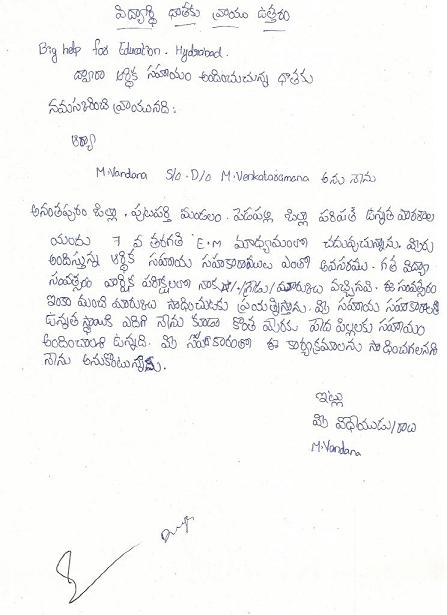 విద్యార్థి ధాతకు వ్రాయు ఉత్తరం
Big help for Education. Hyderabad.
ద్వారా ఆర్థిక సహాయం అందించుచున్న ధాతకు
నమస్కరించి వ్రాయునది:
ఆర్యా
M.Vandana S/o. D/o M. Venkataramana అను నేను
అనంతపురం జిల్లా, పుటపర్తి మండలం. పెడపల్లి జిల్లా పరిషత్ ఉన్నత పాఠశాల
యందు 7 వ తరగతి E.M మాధ్యమంలో చదువుచున్నాను. మీరు
అందిస్తున్న ఆర్థిక సహాయ సహకారాములు ఎంతో అవసరము. గత విద్యా
సంవత్సరం వార్షిక పరీక్షలలో నాకు /గ్రేడు/మార్కులు వచ్చినవి. ఈ సంవత్సరం
ఇంకా మంచి మార్కులు సాధించుటకు ప్రయత్నిస్తాను. మీ సహాయ సహకారాలతో
ఉన్నత స్థాయికి ఎదిగి నేను కూడా కొంత మేరకు పేద పిల్లలకు సహాయం
అందించాలని ఉన్నది. మీ సహకారంతో ఈ కార్యక్రమాలను సాధించగలనని
నేను అనుకొంటున్నాను.
ఇట్లు
మీ విధేయుడు/రాలు
M.Vandana